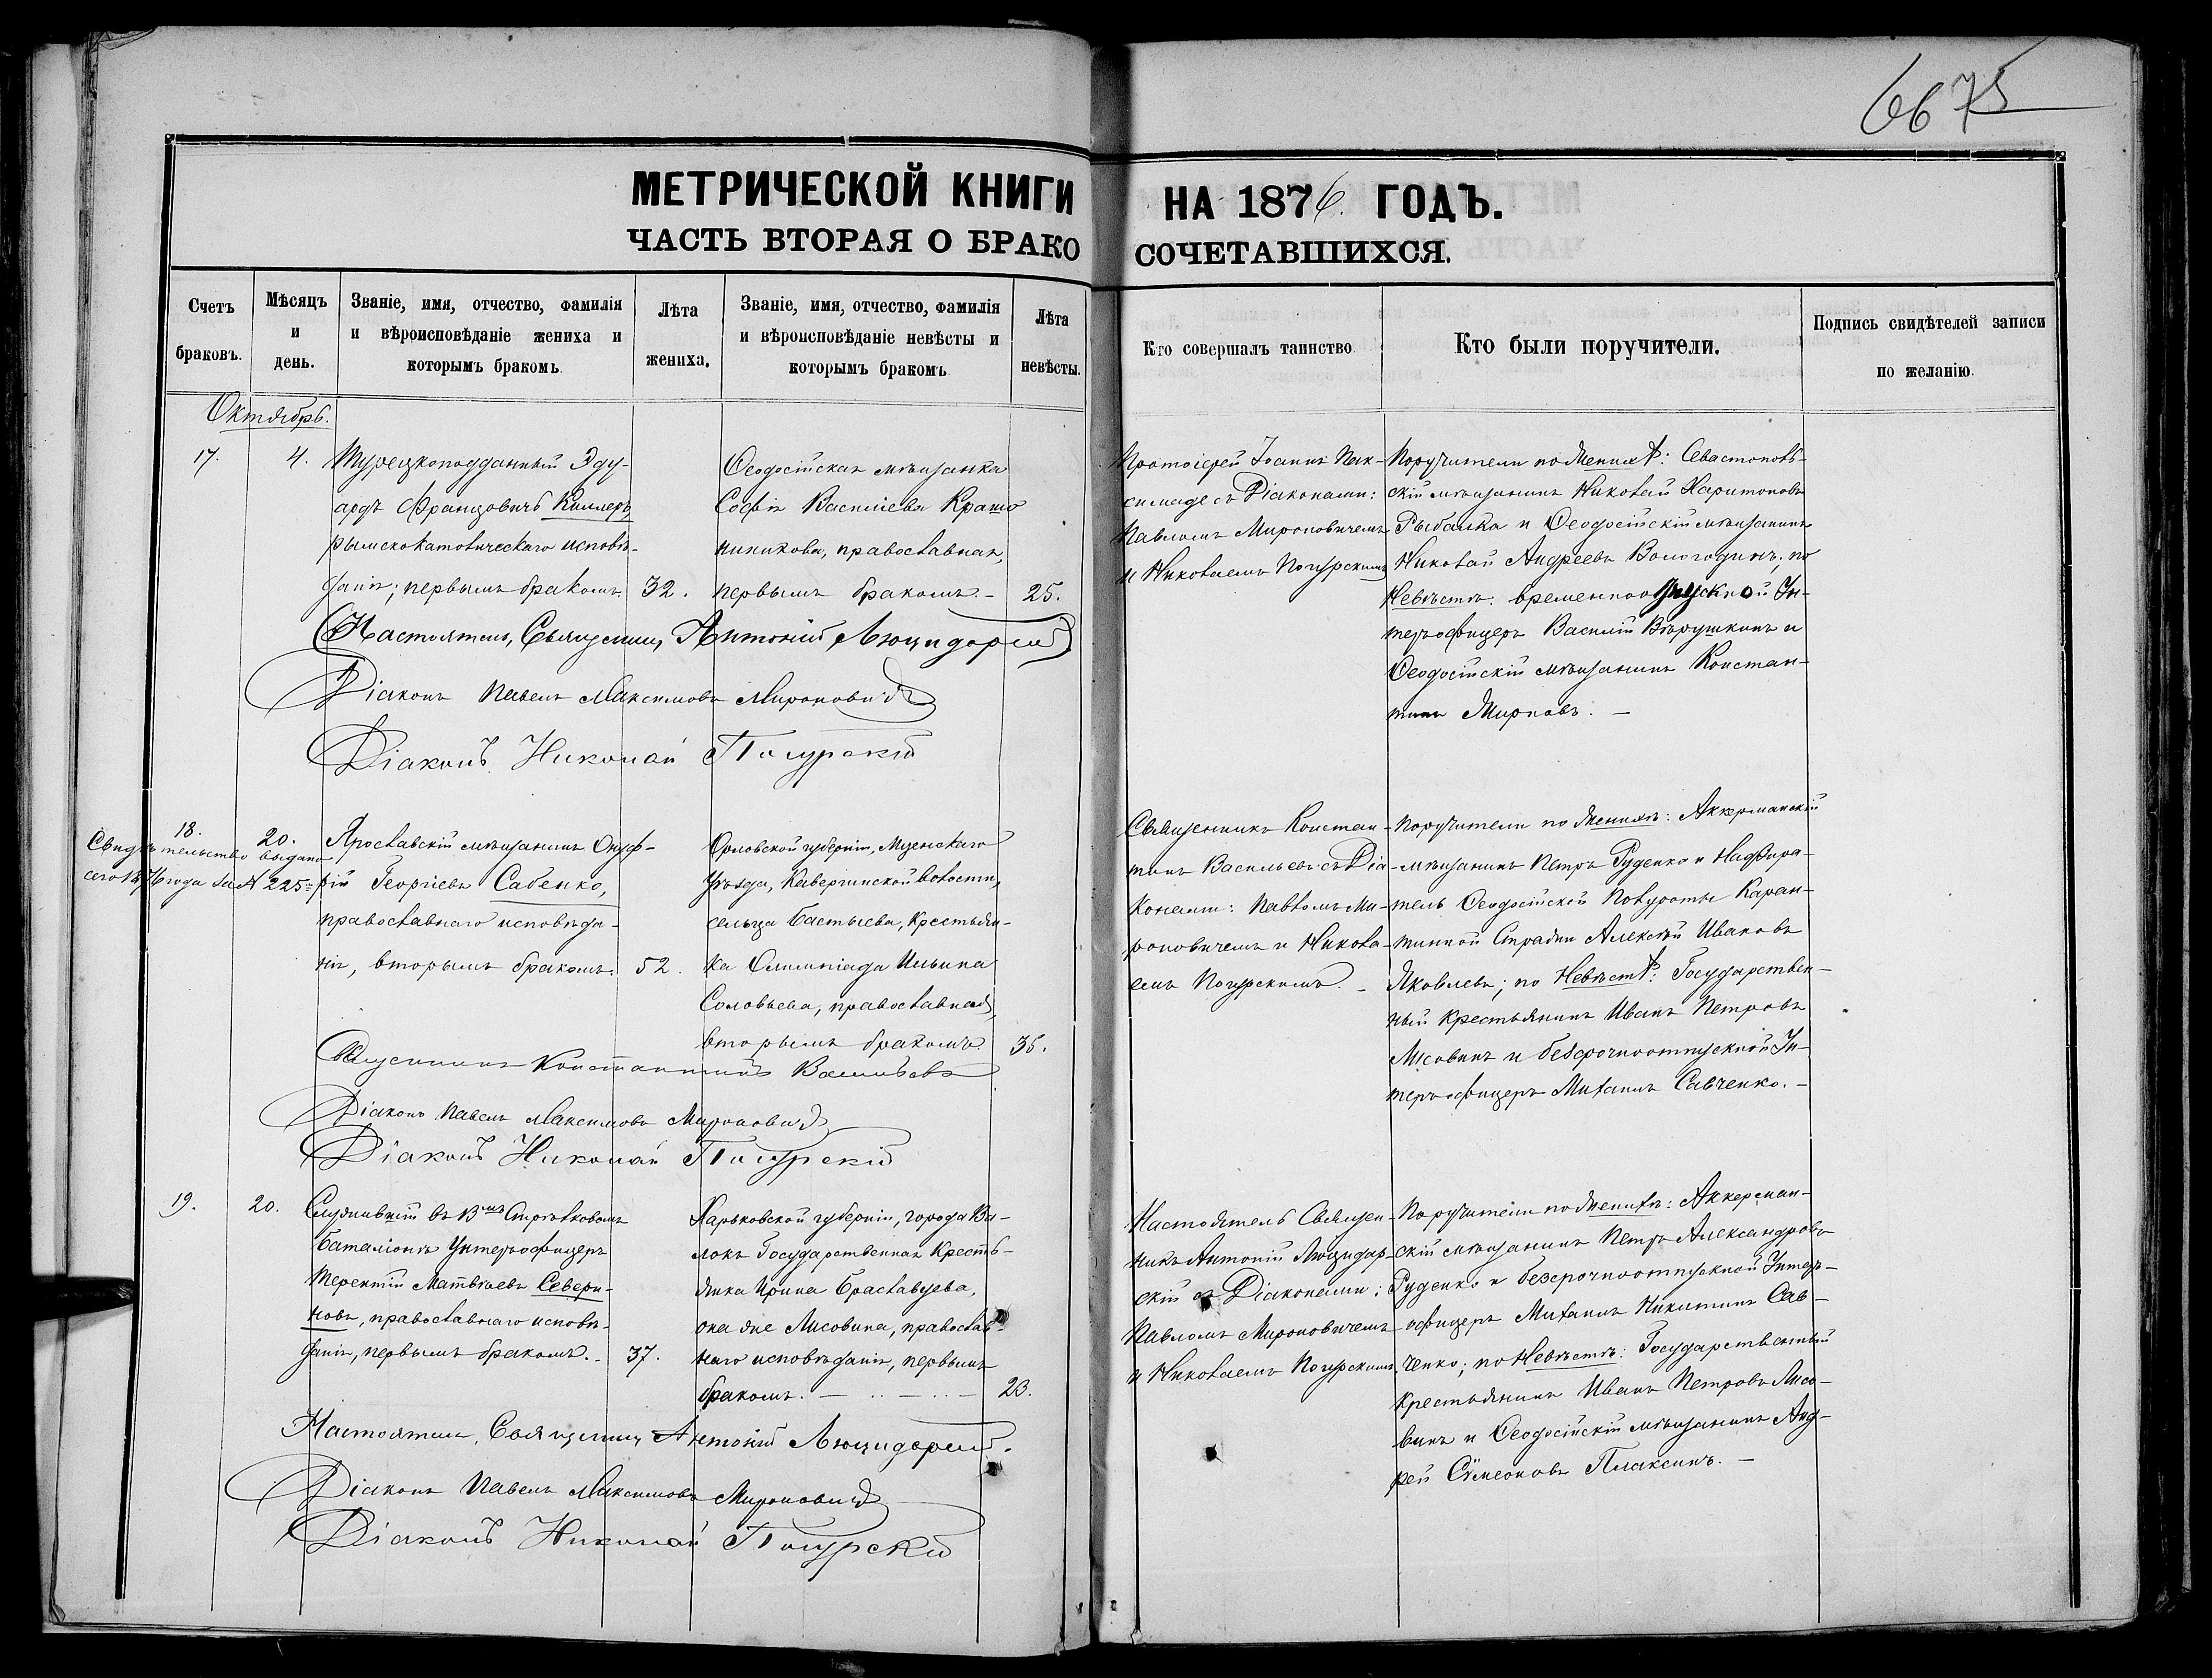 6675
МЕТРИЧЕСКОЙ КНИГИ НА 1876 ГОДЪ.
ЧАСТЬ ВТОРАЯ О БРАКОСОЧЕТАВШИХСЯ.
Счетъ браковъ.
Мѣсяцъ и день.
Званіе, имя, отчество, фамилія
и вѣроисповѣданіе жениха и
которымъ бракомъ.
Лѣта жениха.
Званіе, имя, отчество, фамилія
и вѣроисповѣданіе невѣсты и
которымъ бракомъ
Лѣта невѣсты.
Кто совершалъ таинство
Кто были поручители.
Подпись свидѣтелей записи
по желанію.
Октябрь.
17.
4.
Турецкоподданный Эду-
ардъ Францовичъ Киллеръ,
римскокатолическаго исповѣ-
данія; первымъ бракомъ.
32.
Ѳеодосійская мѣщанка
Софія Василіева Крашо
никова, православная,
первымъ бракомъ. –
25.
Протоіерей Іоаннъ Пак-
симаде съ Діаконами:
Павломъ Мироновичемъ
и Николаемъ Погурскимъ
Поручители по Женихѣ: Севастополь-
скій мѣщанинъ Николай Харитоновъ
Рыбалка и Ѳеодосійскій мѣщанинъ
Николай Андреевъ Вологодинъ; по
Невѣстѣ: временноотпускной Ун-
теръ-офицеръ Василій Вѣрушкинъ и
Ѳеодосійскій мѣщанинъ Констан-
тинъ Мирновъ. –
Настоятель, Священникъ Антоній Люцидарскій
Діаконъ Павелъ Максимовъ Мироновичъ
Діаконъ Николай Погурскій
18.
20.
Свидѣтельство выдано
сего 187 года за № 225
Ярославскій мѣщанинъ Онуф-
рій Георгіевъ Сабенко,
православнаго исповѣда-
нія, вторымъ бракомъ.
52.
Орловской губерніи, Мценскаго
уѣзда, волости,
сельца Бастыева, крестьян-
ка Олимпіада Ильина
Соловьева, православная,
вторымъ бракомъ.
35.
Священникъ Констан-
тинъ Васильевъ съ Діа-
конами: Павломъ Ми-
роновичемъ и Никола-
емъ Погурскимъ. –
Поручители по Женихѣ: Аккерманскій
мѣщанинъ Петръ Руденко и Надзира-
тель Ѳеодосійской Полуроты Каран-
тинной Стражи Алексѣй Ивановъ
Яковлевъ; по Невѣстѣ: Государствен-
ный крестьянинъ Иванъ Петровъ
Лисовинъ и безсрочноотпускной Ун-
теръ-офицеръ Михаилъ Савченко. –
Священникъ Константинъ Васильевъ
Діаконъ Павелъ Максимовъ Мироновичъ
Діаконъ Николай Погурскій
19.
20.
Служившій въ 13мъ Стрѣлковомъ
баталіонѣ Унтеръ-офицеръ
Терентій Матвѣевъ Севери-
новъ, православнаго исповѣ-
данія, первымъ бракомъ. –
37.
Харьковской губерніи, города Ва-
локъ Государственная Кресть-
янка Ирина Браславцева,
она же Лисовина, православ-
наго исповѣданія, первымъ
бракомъ. –
23.
Настоятель Священ-
никъ Антоній Люцидар-
скій съ Діаконами:
Павломъ Мироновичемъ
и Николаемъ Погурскимъ
Поручители по Женихѣ: Аккерман-
скій мѣщанинъ Петръ Александровъ
Руденко и безсрочноотпускной Унтеръ-
офицеръ Михаилъ Никитинъ Сав-
ченко; по Невѣстѣ: Государственный
крестьянинъ Иванъ Петровъ Лисо-
винъ и Ѳеодосійскій мѣщанинъ Анд-
рей Сѵмеоновъ Плаксинъ. –
Настоятель, Священникъ Антоній Люцидарскій.
Діаконъ Павелъ Максимовъ Мироновичъ
Діаконъ Николай Погурскій